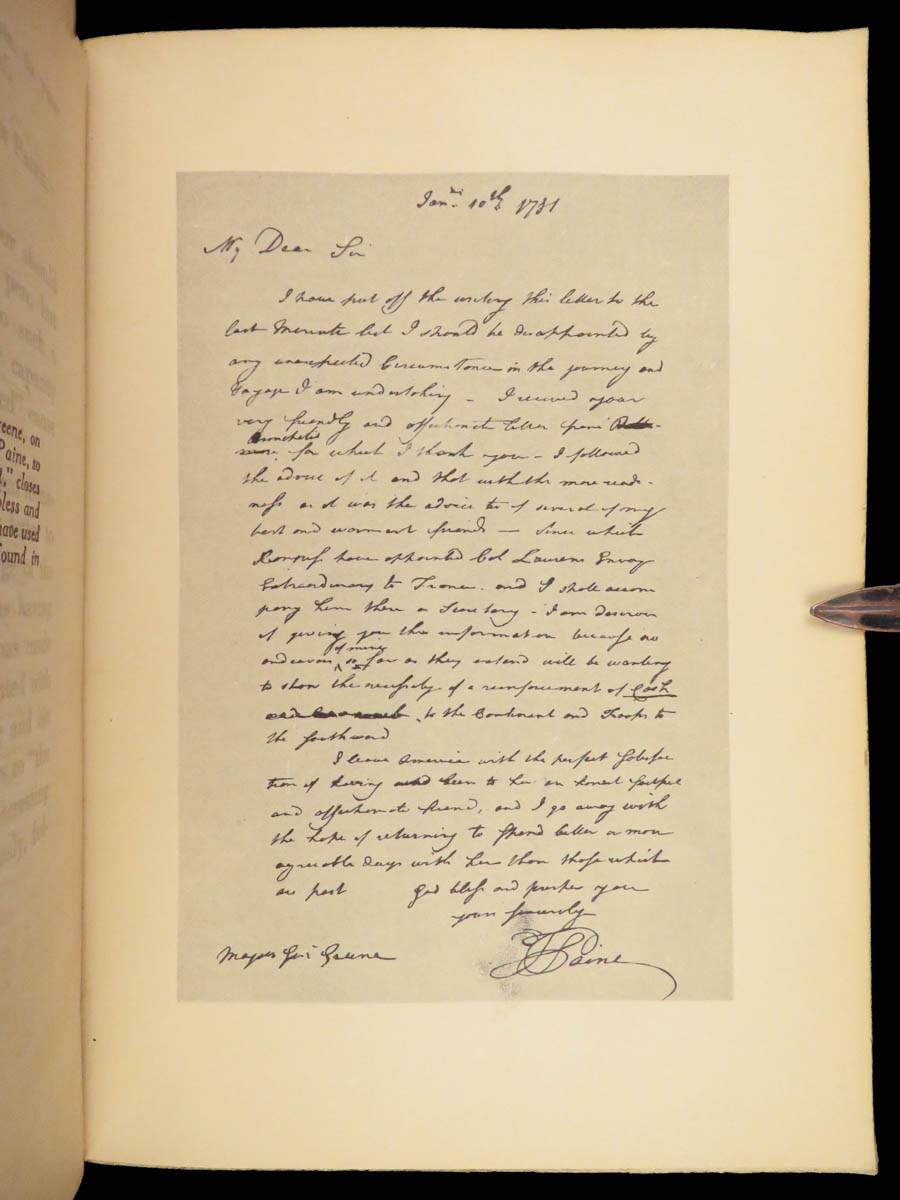 Jany. 10th 1781
My Dear Sir
I have put off the writing this letter to the
last Minute lest I should be disappointed by
any unexpected Circumstance in the journey and
Voyage I am undertaking – I received your
very friendly and affectionate letter from
Annapolis for which I thank you – I followed
the advice of it and that with the more readi-
ness as it was the advice to of several of my
best and warmest friends — Since which
Congress have appointed Col Laurens Envoy
Extraordinary to France. and I shall accom
pany him there as Secretary – I am desirous
of giving you this information because no
endeavors of mine so far as they extend will be wanting
to show the necessity of a reinforcement of Cash
to the Continent and Troops to
the Southward
I leave America with the perfect Satisfac
tion of having been to her an honest faithful
and affectionate friend, and I go away with
the hope of returning to spend better & more
agreeable days with her than those which
are past God bless and prosper you
yours sincerely
T Paine
Major Genl Greene
reene, on
Paine, so
closes
bless and
have used
found in